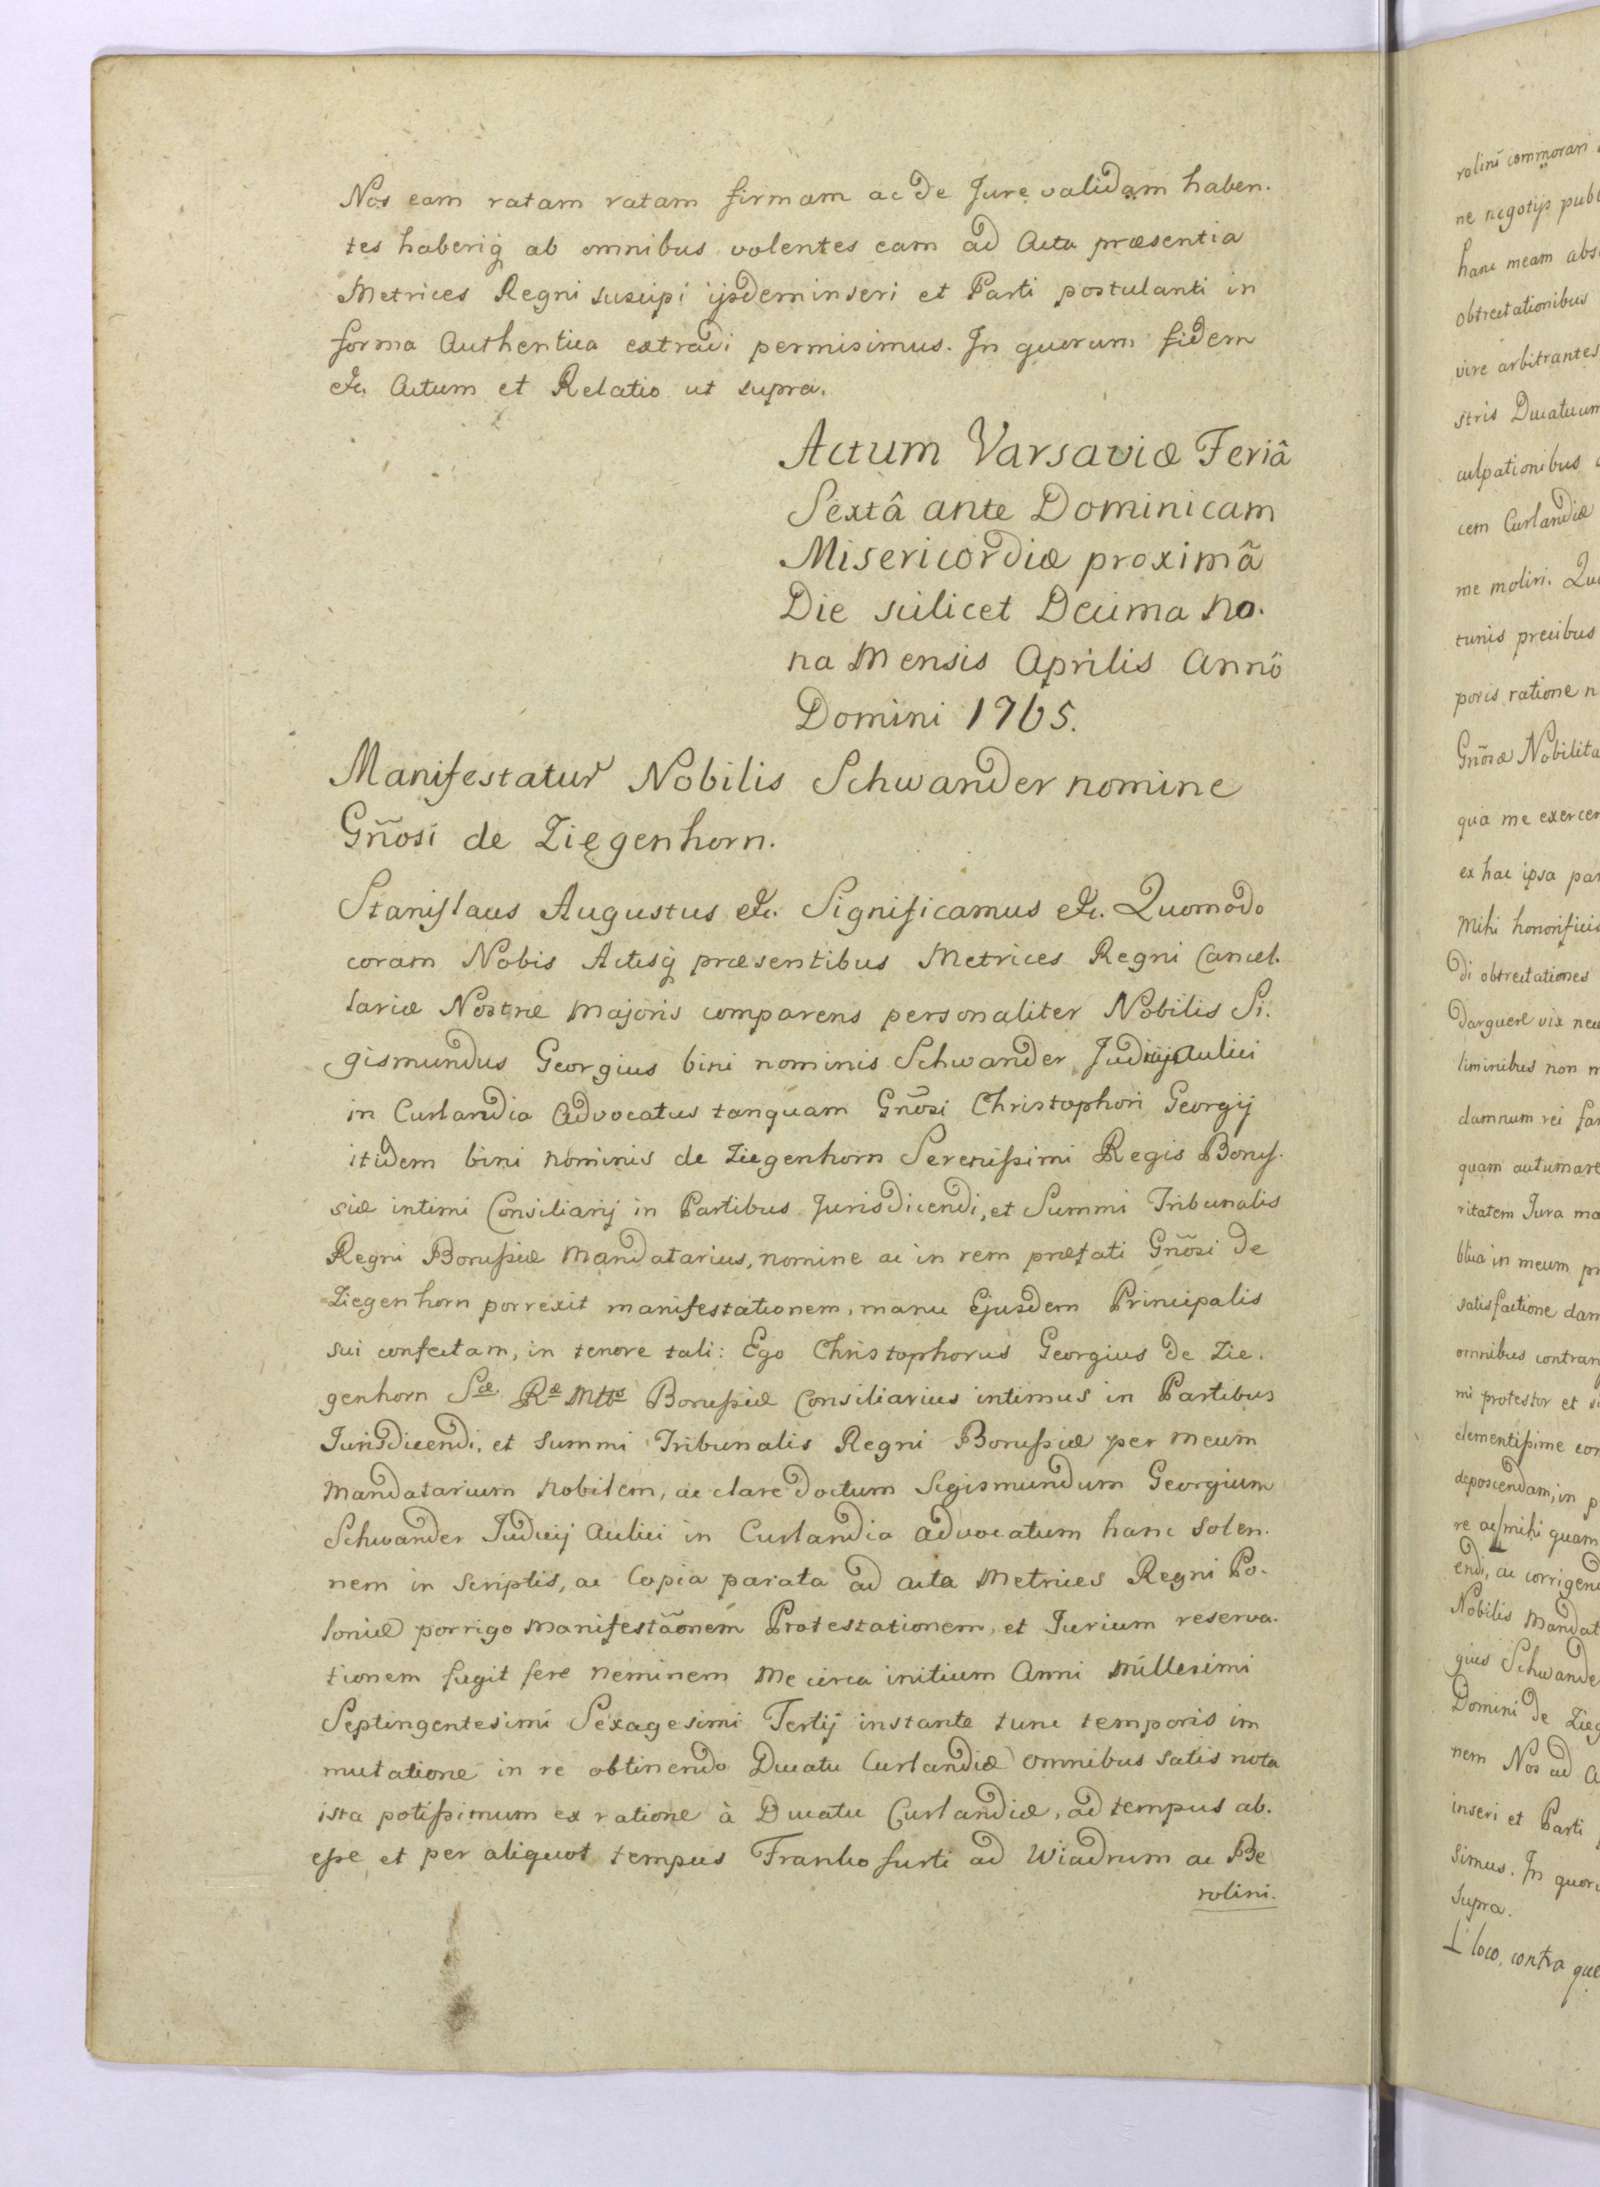 Nos eam ratam ratam firmam ac de Jure validam haben.
tes haberiq́ ab omnibus volentes eam ad Acta præsentia
Metrices Regni suscipi ijsdem inseri et Parti postulanti in
forma Authentica extradi permisimus. In quorum fidem
etc. Actum et Relatio ut supra.
Actum Varsaviæ Feriâ
Sextâ ante Dominicam
Misericordiæ proximâ
Die scilicet Decima no.
na Mensis Aprilis Annô
Domini 1765.
Manifestatur Nobilis Schwander nomine
Gñosi de Ziegenhorn.
Stanislaus Augustus etc. Significamus etc. Quomodo
coram Nobis Actisq́ præsentibus Metrices Regni Cancel.
lariæ Nostræ Majoris comparens personaliter Nobilis Si.
gismundus Georgius bini nominis Schwander Judicij Aulici
in Curlandia Advocatus tanquam Gñosi Christophori Georgij
itidem bini nominis de Ziegenhorn Serenissimi Regis Borus.
siæ intimi Consiliarij in Partibus Jurisdicendi, et Summi Tribunalis
Regni Borussiæ Mandatarius, nomine ac in rem præfati Gñosi de
Ziegenhorn porrexit manifestationem, manu Ejusdem Principalis
sui confectam, in tenore tali: Ego Christophorus Georgius de Zie.
genhorn Sæ Ræ Mttis Borussiæ Consiliarius intimus in Partibus
Jurisdicendi, et Summi Tribunalis Regni Borussiæ per meum
Mandatarium Nobilem, ac clare doctum Sigismundum Georgium
Schwander Judicij Aulici in Curlandia advocatum hanc solen.
nem in scriptis, ac Copia parata ad acta Metrices Regni Po.
loniæ porrigo Manifestãonem Protestationem, et Jurium reserva.
tionem fugit fere neminem me circa initium Anni Millesimi
Septingentesimi Sexagesimi Tertij instante tunc temporis im
mutatione in re obtinendo Ducatu Curlandiæ omnibus satis nota
ista potissimum ex ratione à Ducatu Curlandiæ, ad tempus ab.
esse et per aliquot tempus Franko furti ad Wiadrum ac Be
rolini.
rolini commorari
ne negotijs publ
hanc meam abs
obtrectationibus
vire arbitrantes
stris Ducatuum
culpationibus
cem Curlandiæ
me moliri. Qu
tunis precibus
poris ratione n
Gñosæ Nobilita
qua me exercer
ex hac ipsa par
Mihi honorificis
di obtrectationes
darguere vix neu
liminibus non m
damnum rei fa
quam autumare
ritatem Jura ma
blica in meum pr
satisfactione dam
omnibus contrar
mi protestor et s
clementissime con
deposcendam, in p
re ac mihi quam
endi, ac corrigen
Nobilis Mandat
gius Schwande
Domini de Zieg
nem Nos ad a
inseri et Parti
simus. In quor
supra.
loco, contra quæ